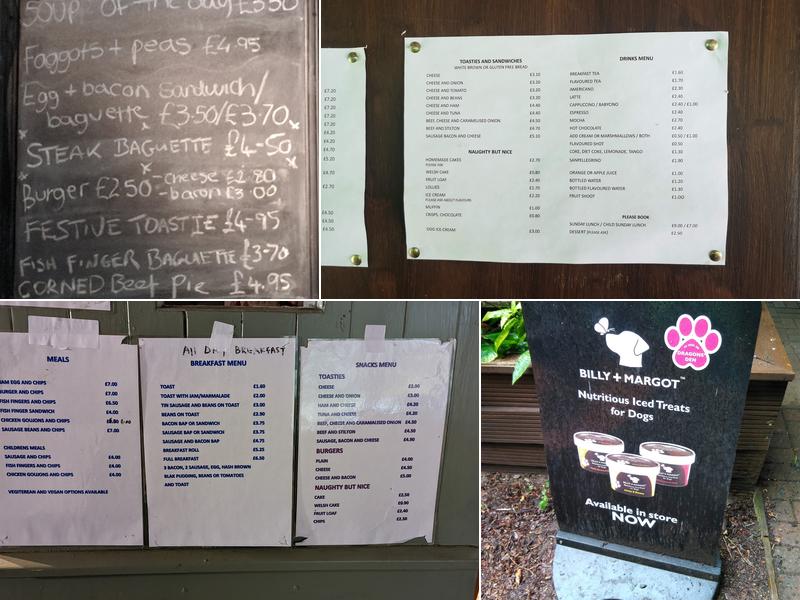 SOUP OF the day £3.50
Faggots + peas £4.95
Egg + bacon Sandwich/
baguette £3.50/£3.70
STEAK BAGUETTE £4-50
Burger £2.50 - cheese £2.80
- bacon £3.00
FESTIVE TOASTIE £4-95
FISH FINGER BAGUETTE £3-70
CORNED Beef Pie £4.95
£7.20
£7.20
£7.20
£5.20
£4.20
£4.20
£4.70
£5.20
£4.70
£2.70
£4.50
£4.50
£4.50
TOASTIES AND SANDWICHES
WHITE BROWN OR GLUTEN FREE BREAD
CHEESE £3.10
CHEESE AND ONION £3.20
CHEESE AND TOMATO £3.20
CHEESE AND BEANS £3.20
CHEESE AND HAM £4.40
CHEESE AND TUNA £4.40
BEEF, CHEESE AND CARAMELISED ONION £4.50
BEEF AND STILTON £4.70
SAUSAGE BACON AND CHEESE £5.10
NAUGHTY BUT NICE
HOMEMADE CAKES £2.70
PLEASE ASK
WELSH CAKE £0.80
FRUIT LOAF £2.40
LOLLIES £1.70
ICE CREAM £2.20
PLEASE ASK ABOUT FLAVOURS
MUFFIN £1.00
CRISPS, CHOCOLATE £0.80
DOG ICE CREAM £3.00
DRINKS MENU
BREAKFAST TEA £1.60
FLAVOURED TEA £1.70
AMERICANO £2.30
LATTE £2.40
CAPPUCCINO / BABYCINO £2.40 / £1.00
ESPRESSO £2.40
MOCHA £2.70
HOT CHOCOLATE £2.40
ADD CREAM OR MARSHMALLOWS / BOTH £0.50 / £1.00
FLAVOURED SHOT £0.50
COKE, DIET COKE, LEMONADE, TANGO £1.30
SANPELLEGRINO £1.80
ORANGE OR APPLE JUICE £1.00
BOTTLED WATER £1.20
BOTTLED FLAVOURED WATER £1.30
FRUIT SHOOT £1.00
PLEASE BOOK
SUNDAY LUNCH / CHILD SUNDAY LUNCH £9.00 / £7.00
DESSERT (PLEASE ASK) £2.50
MEALS
HAM EGG AND CHIPS £7.00
BURGER AND CHIPS £7.00
FISH FINGERS AND CHIPS £6.50
FISH FINGER SANDWICH £4.00
CHICKEN GOUJONS AND CHIPS
SAUSAGE BEANS AND CHIPS £7.00
CHILDRENS MEALS
SAUSAGE AND CHIPS £4.00
FISH FINGERS AND CHIPS £4.00
CHICKEN GOUJONS AND CHIPS £4.00
VEGITERIAN AND VEGAN OPTIONS AVAILABLE
All Day BREAKFAST
BREAKFAST MENU
TOAST £1.60
TOAST WITH JAM/MARMALADE £2.00
TIN SAUSAGE AND BEANS ON TOAST £3.00
BEANS ON TOAST £2.50
BACON BAP OR SANDWICH £3.75
SAUSAGE BAP OR SANDWICH £3.75
SAUSAGE AND BACON BAP £4.75
BREAKFAST ROLL £5.25
FULL BREAKFAST £6.50
3 BACON, 2 SAUSAGE, EGG, HASH BROWN
BLAK PUDDING, BEANS OR TOMATOES
AND TOAST
SNACKS MENU
TOASTIES
CHEESE £2.00
CHEESE AND ONION £3.00
HAM AND CHEESE £4.20
TUNA AND CHEESE £4.20
BEEF, CHEESE AND CARAMELISED ONION £4.30
BEEF AND STILTON £4.50
SAUSAGE, BACON AND CHEESE £4.90
BURGERS
PLAIN £4.00
CHEESE £4.50
CHEESE AND BACON £5.00
NAUGHTY BUT NICE
CAKE £2.50
WELSH CAKE £0.80
FRUIT LOAF £2.40
CHIPS £2.50
BILLY + MARGOT™
Nutritious Iced Treats
for Dogs
AS SEEN ON
DRAGONS'
DEN
Available in store
NOW